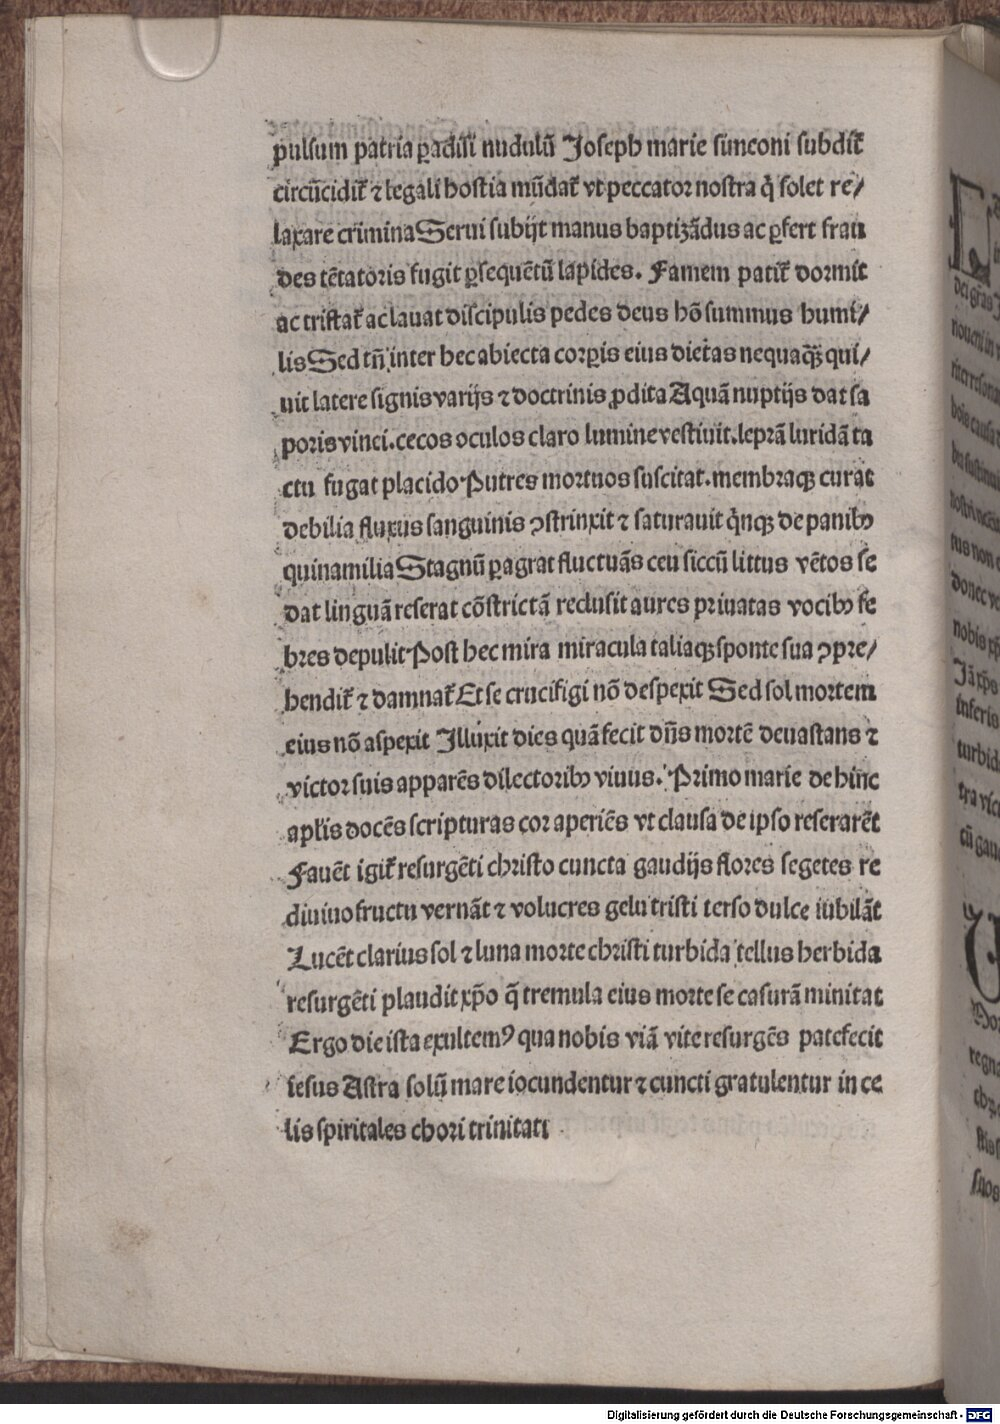 pulsum patria ꝑadisi nudulū Joseph marie simeoni subdit᷑
circūcidit᷑ ⁊ legali hostia mūdat᷑ vt peccator nostra q̇ solet re/
laxare crimina Serui subijt manus baptizādus ac ꝑfert frau
des tētatoris fugit ꝑsequētū lapides. Famem patit᷑ dormit
ac tristat᷑ ac lauat discipulis pedes deus hō summus humi/
lis Sed tn̄ inter hec abiecta corꝑis eius dietas nequaq̄ꝫ qui/
uit latere signis varijs ⁊ doctrinis ꝓdita Aquā nuptijs dat sa
poris vinci. cecos oculos claro lumine vestiuit. leprā luridā ta
ctu fugat placido Putres mortuos suscitat. membraqꝫ curat
debilia fluxus sanguinis ꝯstrinxit ⁊ saturauit q̇nqꝫ de panibꝰ
quinamilia Stagnū ꝑagrat fluctuās ceu siccū littus vētos se
dat linguā reserat cōstrictā reclusit aures priuatas vocibꝰ fe
bres depulit Post hec mira miracula taliaqꝫ sponte sua ꝯpre/
hendit᷑ ⁊ damnat᷑ Et se crucifigi nō despexit Sed sol mortem
eius nō aspexit Illuxit dies quā fecit dn̄s mortē deuastans ⁊
victor suis apparēs dilectoribꝰ viuus. Primo marie dehinc
apl̄is docēs scripturas cor aperiēs vt clausa de ipso reserarēt
Fauēt igit᷑ resurgēti christo cuncta gaudijs flores segetes re
diuiuo fructu vernāt ⁊ volucres gelu tristi terso dulce iubilāt
Lucēt clarius sol ⁊ luna morte christi turbida tellus herbida
resurgēti plaudit xp̄o q̄ tremula eius morte se casurā minitat
Ergo die ista exultemꝰ qua nobis viā vite resurgēs patefecit
iesus Astra solū mare iocundentur ⁊ cuncti gratulentur in ce
lis spiritales chori trinitati
Digitalisierung gefördert durch die Deutsche Forschungsgemeinschaft - DFG